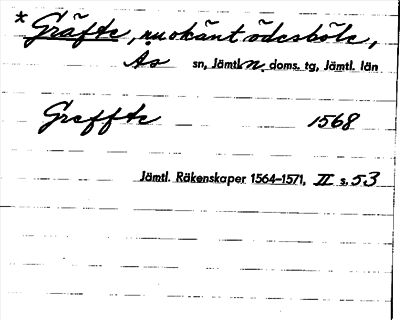 * Gräfte, nu okänt ödesböle,
Ås sn, Jämtl. N. doms. tg, Jämtl. län
Greffte 1568
Jämtl. Räkenskaper 1564–1571, II s. 53